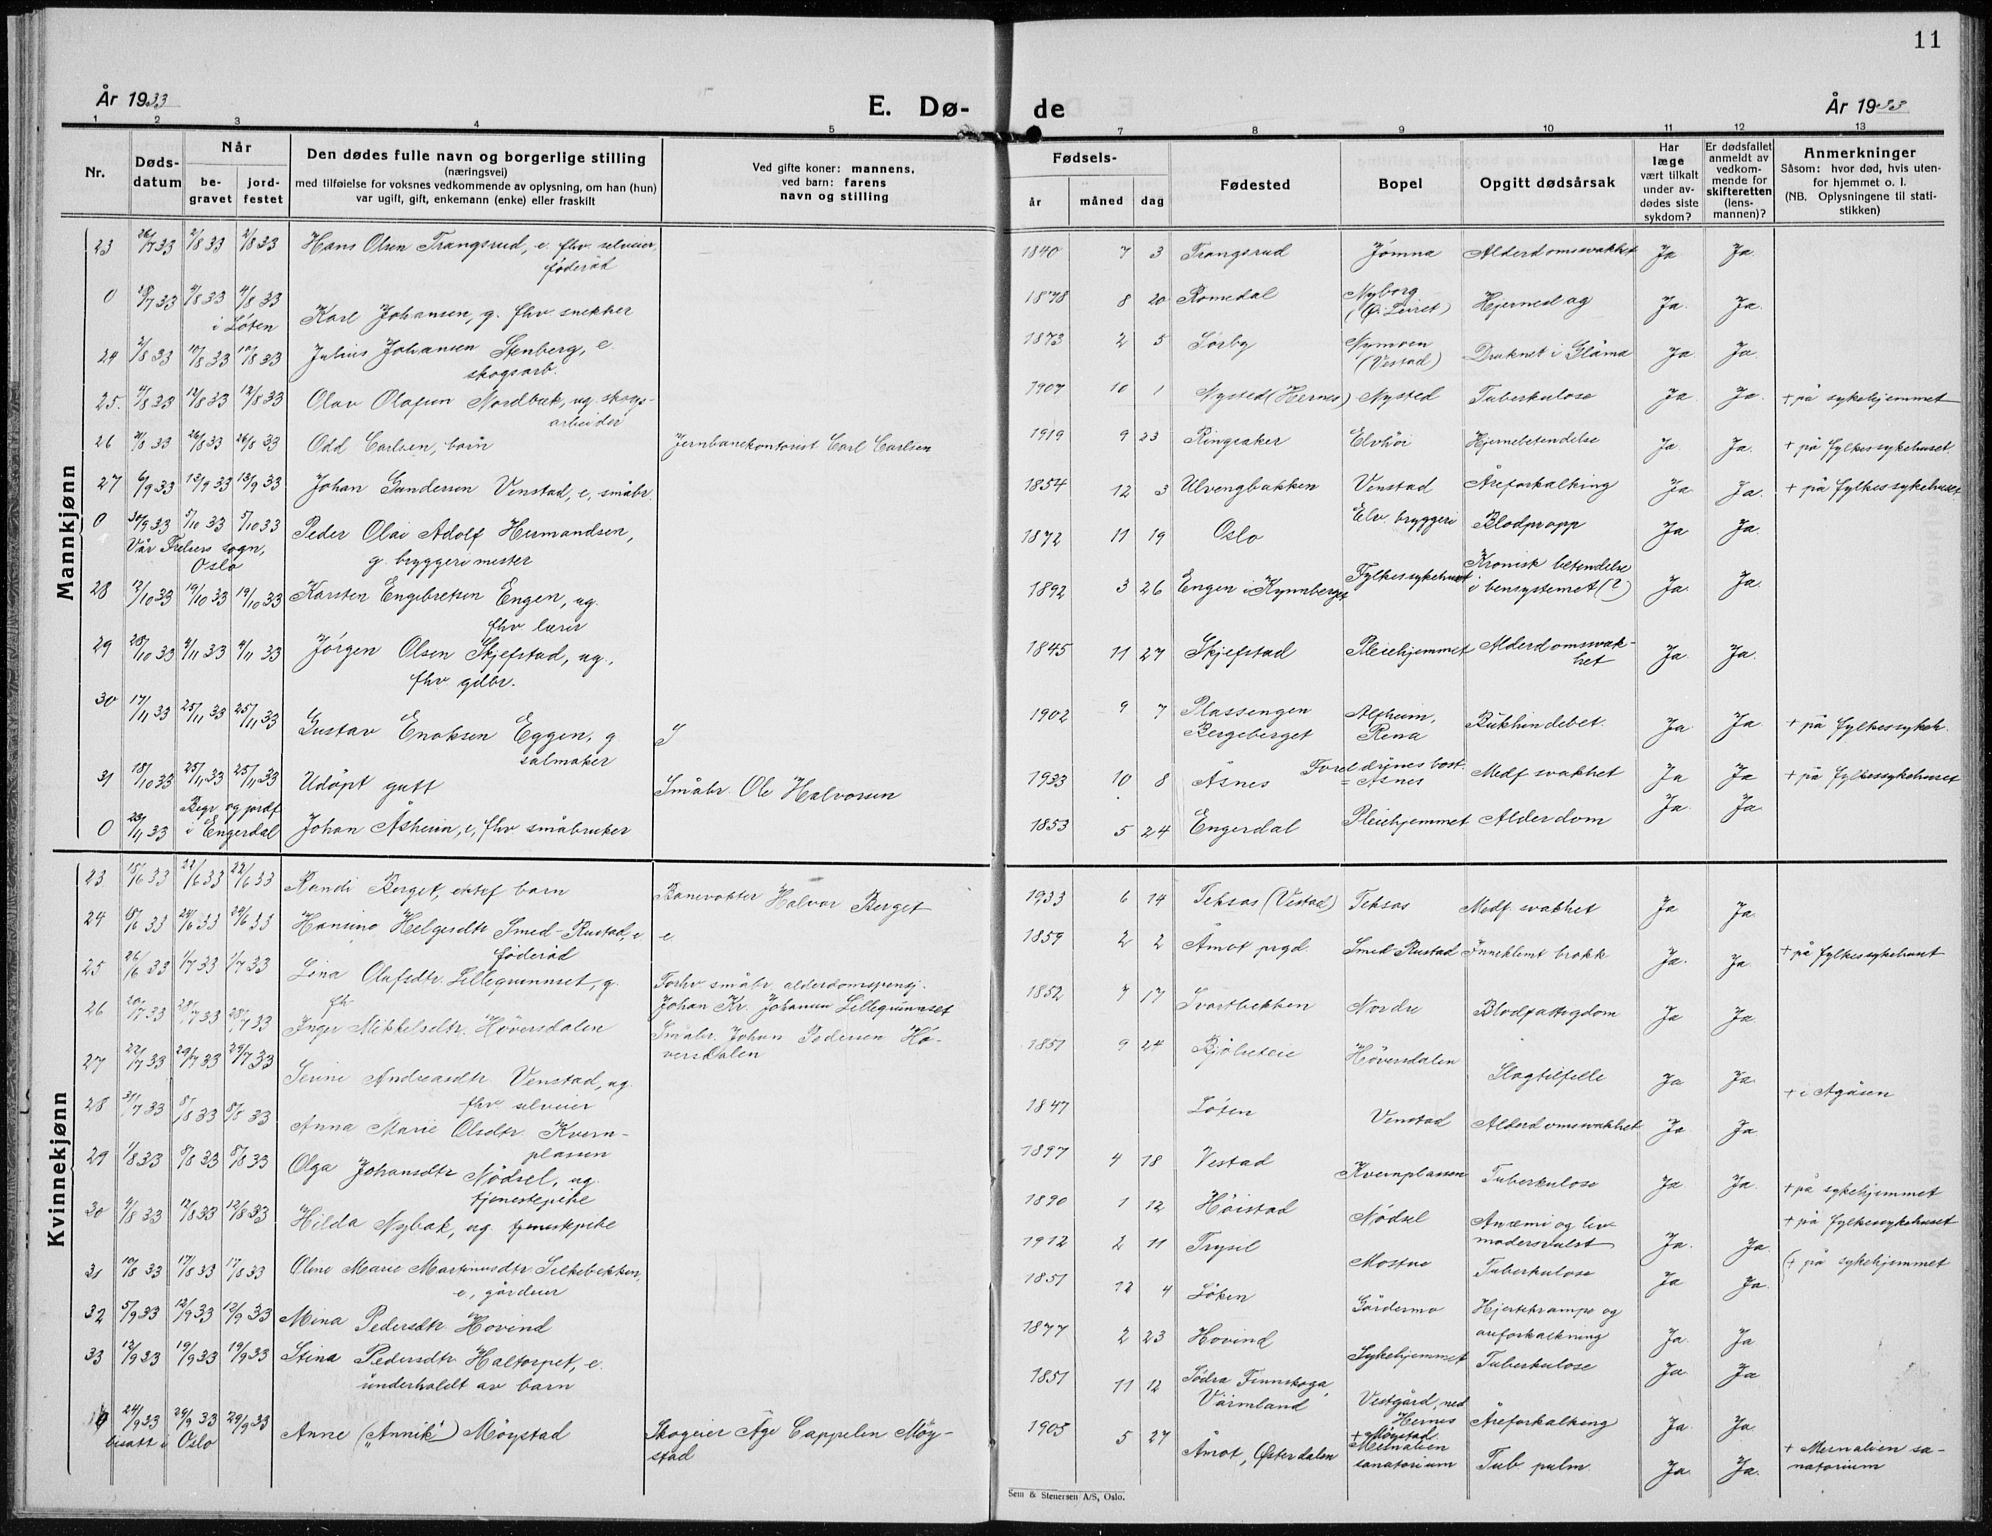 11
År 1933
E. Dø-
de
År 1933
1 2 3 4 5 7 8 9 10 11 12 13
Nr.
Døds-
datum
Når
be-
gravet
jord-
festet
Den dødes fulle navn og borgerlige stilling
(næringsvei)
med tilføielse for voksnes vedkommende av oplysning, om han (hun)
var ugift, gift, enkemann (enke) eller fraskilt
Ved gifte koner: mannens,
ved barn: farens
navn og stilling
Fødsels-
år måned dag
Fødested
Bopel
Opgitt dødsårsak
Har
læge
vært tilkalt
under av-
dødes siste
sykdom?
Er dødsfallet
anmeldt av
vedkom-
mende for
skifteretten
(lens-
mannen)?
Anmerkninger
Såsom: hvor død, hvis uten-
for hjemmet o. l.
(NB. Oplysningene til stati-
stikken)
Mannkjønn
23 26/7 33 2/8 33 2/8 33 Hans Olsen Trangsrud, e. fhv. selveier, 1840 7 3 Trangsrud Jømna Alderdomssvakhet Ja Ja
føderåd
0 18/7 33 4/8 33 4/8 33 Karl Johansen, g. fhv. snekker 1878 8 20 Romedal Nyborg Hjerneslag Ja Ja
i Løten (Ø. Leiret)
24 2/8 33 10/8 33 10/8 33 Julius Johansen Stenberg, e. 1873 2 5 Sørby Nymoen Druknet i Glåma Ja Ja
skogsarb. (Vestad)
25. 4/8 33 12/8 33 12/8 33 Olav Olafsen Nordbak, ug. skogs- 1907 10 1 Nysted (Hernes) Nysted Tuberkulose Ja Ja + på sykehjemmet
arbeider
26 21/8 33 26/8 33 26/8 33 Odd Carlsen, barn Jernbanekontorist Carl Carlsen 1919 9 23 Ringsaker Elvhøi Hjernebetendelse Ja Ja + på fylkessykehuset
27 6/9 33 13/9 33 13/9 33 Johan Gundersen Venstad, e, småbr. 1854 12 3 Ulvengbakken Venstad Åreforkalking Ja Ja + på fylkessykehuset
0 30/9 33 5/10 33 5/10 33 Peder Olai Adolf Hermandsen, 1872 11 19 Oslo Elv. bryggeri Blodpropp Ja Ja
Vår Frelsers sogn, Oslo g. bryggerimester
28 12/10 33 19/10 33 19/10 33 Karsten Engebretsen Engen, ug. 1892 3 26 Engen i Kynnberget Fylkessykehuset Kronisk betendelse i bensystemet (?) Ja Ja
fhv. lærer
29 28/10 33 4/11 33 4/11 33 Jørgen Olsen Skjefstad, ug, 1845 11 27 Skjefstad Pleiehjemmet Alderdomssvak- Ja Ja
fhv gdbr. het
30 17/11 33 25/11 33 25/11 33 Gustav Enoksen Eggen, g 1902 9 7 Plassengen Alfheim, Bukhindebet. Ja Ja + på fylkessykeh.
salmaker Bergeberget Rena
31 18/10 33 25/11 33 25/11 33 Udøpt gutt Småbr. Ole Halvorsen 1933 10 8 Åsnes Foreldrenes bost. = Åsnes Medf. svakhet Ja Ja + på fylkessykehuset
0 23/11 33 Begr. og jordf i Engerdal Johan Åsheim, e, fhv småbruker 1853 5 24 Engerdal Pleiehjemmet Alderdom Ja Ja
Kvinnekjønn
23 15/6 33 22/6 33 22/6 33 Randi Berget, ektef barn Banevokter Halvor Berget 1933 6 14 Teksås (Vestad) Teksås Medf. svakhet Ja Ja
24 18/6 33 24/6 33 24/6 33 Hansine Helgesdtr Smed-Rustad, e e 1859 2 2 Åmot prgd. Smed Rustad Inneklemt brokk Ja Ja + på fylkessykehuset
føderåd
25 26/6 33 1/7 33 1/7 33 Lina Olafsdtr. Lillegrunnset, g. Forhv småbr alderdomspensj. 1852 7 17 Svartbekken Nordre Blodfattigdom Ja Ja
Johan Kr. Johansen Lillegrunnset
26 20/7 33 28/7 33 28/7 33 Inger Mikkelsdtr. Høversdalen Småbr. Johan Pedersen Hø- 1851 9 24 Bjølseteie Høversdalen Slagtilfelle Ja Ja + i Agåsen
versdalen
27 22/7 33 29/7 33 29/7 33 Serine Andreasdtr Venstad, ug. 1847 Løten Venstad Alderdomssvakhet Ja Ja
fhv selveier
28 31/7 33 8/8 33 8/8 33 Anna Marie Olsdtr. Kvern- 1897 4 18 Vestad Kvernplassen Tuberkulose Ja Ja + på sykehjemmet
plassen
29 1/8 33 8/8 33 8/8 33 Olga Johansdtr Nødsel, ug. 1890 1 12 Høistad Nødsel Anæmi og liv- Ja Ja + på fylkessykehuset
tjenestepike modersvulst
30 4/8 33 12/8 33 12/8 33 Hilda Nybak, ug. tjenestepike 1912 2 11 Trysil Mostue Tuberkulose Ja Ja (+ på sykehjemmet
31 10/8 33 17/8 33 17/8 33 Oline Marie Martinusdtr. Silkebekken, 1851 12 4 Løken Gårdermo Hjertekrampe og
e, gårdeier åreforkalkning Ja Ja
32 5/9 33 12/9 33 12/9 33 Mina Pedersdtr. Hovind 1877 2 23 Hovind Sykehjemmet Tuberkulose Ja Ja
33 12/9 33 19/9 33 19/9 33 Stina Pedersdtr Haltorpet, e. 1851 11 12 Södra Finnskoga Värmland Vestgård, ned Hernes Åreforkalking Ja Ja
underholdt av barn
0 24/9 33 29/9 33 29/9 33 Anne ("Annik") Møystad Skogeier Åge Cappelen Møy- 1905 5 27 Åmot, Østerdalen + Møystad Mesnalien Tub. pulm. Ja Ja + Mesnalien sa-
bisatt i Oslo stad sanatorium natorium
Sem & Stenersen A/S, Oslo.